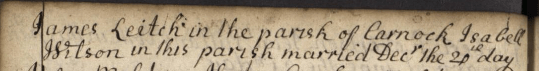 James Leitch in the parish of Carnock Isabell
Wilson in this parish married Decr the 20th day